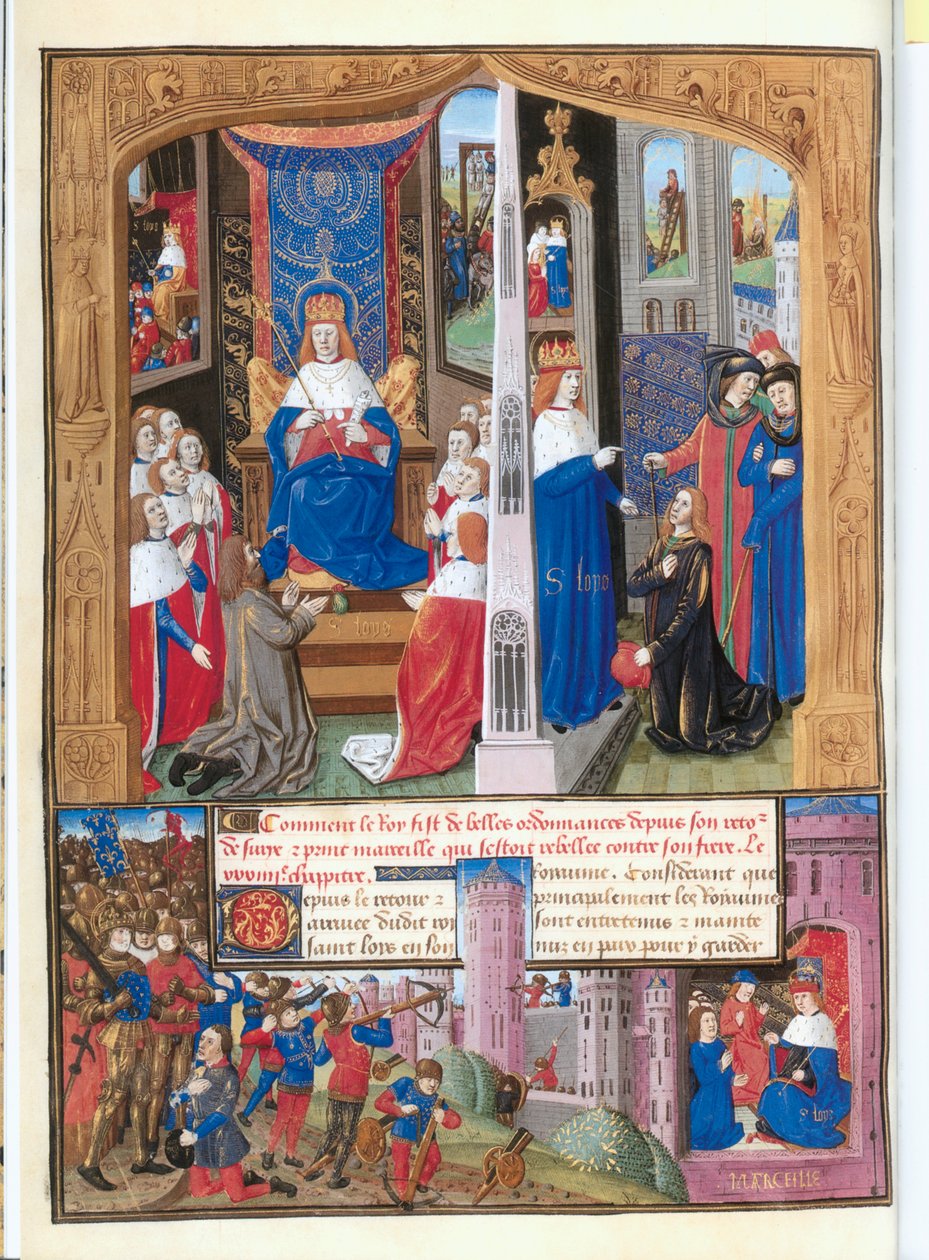 S loys
S loys
S loys
S loys
S loys
Comment le Roy fist de belles ordonnances depuis son reto~
de surye ⁊ print marceille qui sestoit rebellee contre son frere. Le
xvviii.e chappitre.
Depuis le retour ⁊
arriuee dudit roy
saint loys en son
Royaume. Considerant que
principalement les Royaumes
sont entretenus ⁊ mainte
nuz en paix pour y garder
MARCEILLE